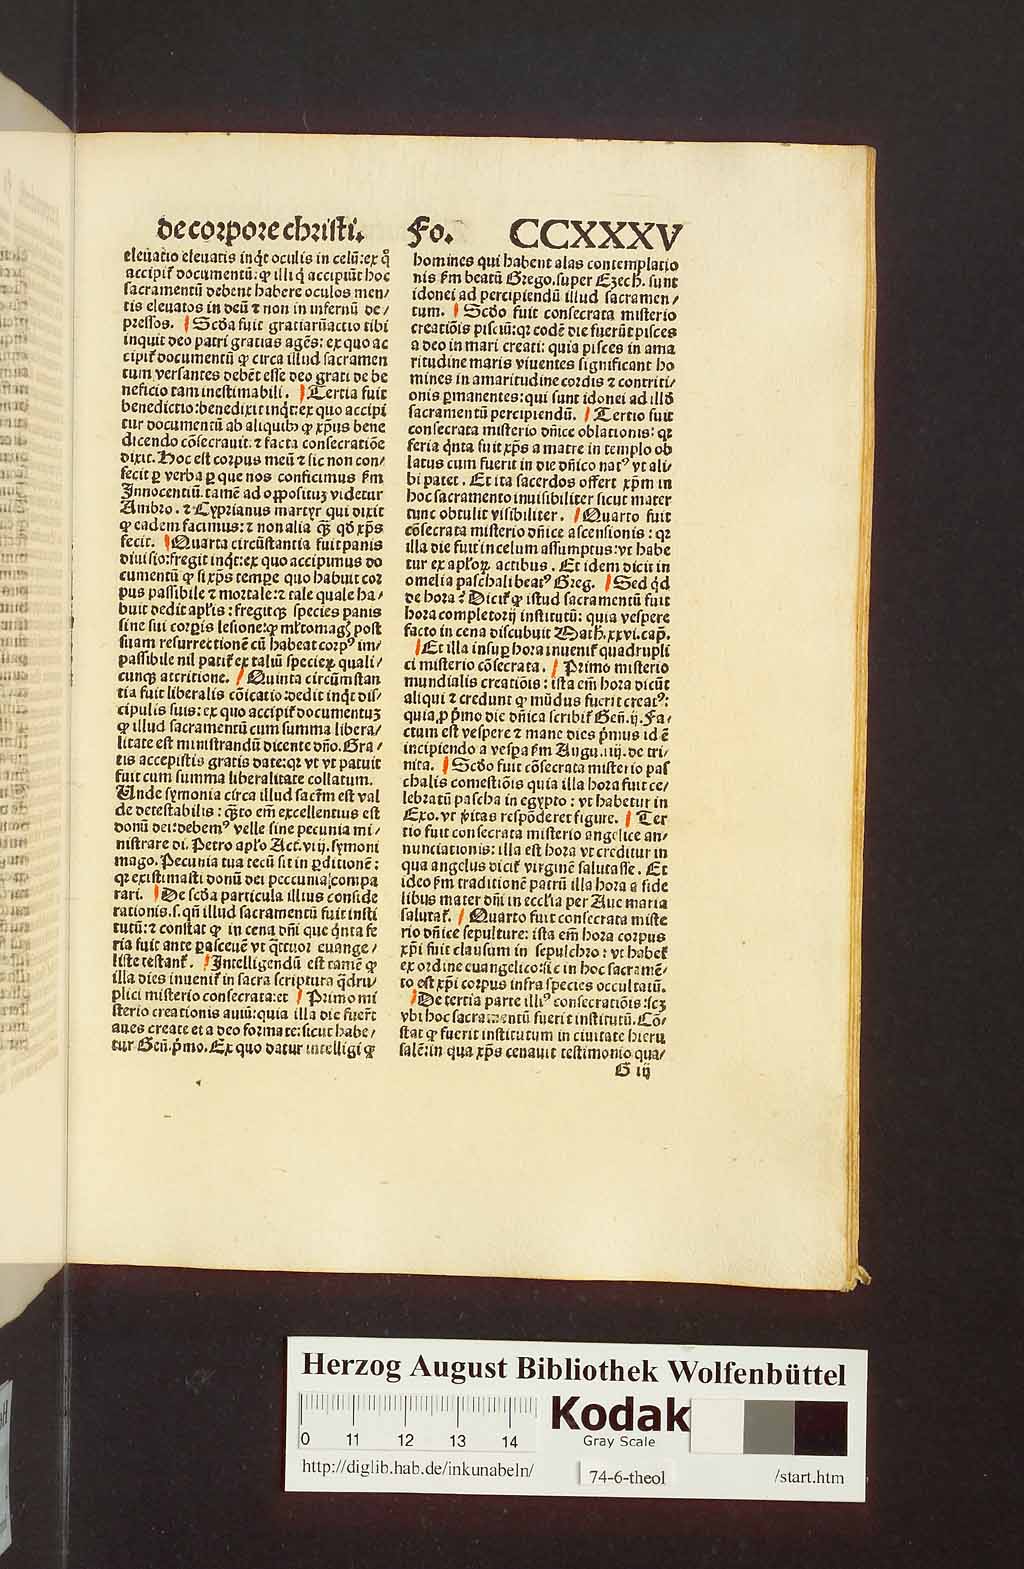 de corpore christi. Fo. CCXXXV
eleuatio eleuatis inqͥt oculis in celū: ex qͦ
accipit᷑ documentū: ꝙ illi qͥ accipiūt hoc
sacramentū debent habere oculos men⸗
tis eleuatos in deū ⁊ non in infernū de⸗
pressos. Scd̓a fuit gratiarūactio tibi
inquit deo patri gratias agēs: ex quo ac
cipit᷑ documentū ꝙ circa illud sacramen
tum versantes debēt esse deo grati de be
neficio tam inestimabili. Tertia fuit
benedictio: benedixit inqͥt: ex quo accipi
tur documentū ab aliquibꝰ ꝙ xp̄us bene
dicendo cōsecrauit. ⁊ facta consecratiōe
dixit. Hoc est corpus meū ⁊ sic non con⸗
fecit ꝑ verba ꝑ que nos conficimus ẜm
Innocentiū. tamē ad opposituꝫ videtur
Ambro. ⁊ Cyprianus martyr qui dixit
ꝙ eadem facimus: ⁊ non alia qͣꝫ qd̓ xp̄s
fecit. Quarta circūstantia fuit panis
diuisio: fregit inqͥt: ex quo accipimus do
cumentū ꝙ si xp̄s tempe quo habuit cor
pus passibile ⁊ mortale: ⁊ tale quale ha⸗
buit dedit apl̓is: fregitqꝫ species panis
sine sui corꝑis lesione: ꝙ ml̓tomagꝭ post
suam resurrectionē cū habeat corpꝰ im⸗
passibile nil patit᷑ ex taliū specieꝝ quali⸗
cunqꝫ attritione. Quinta circūmstan
tia fuit liberalis cōicatio: dedit inqͥt dis⸗
cipulis suis: ex quo accipit᷑ documentuꝫ
ꝙ illud sacramentū cum summa libera⸗
litate est ministrandū dicente dn̄o. Gra⸗
tis accepistis gratis date: qꝛ vt vt patuit
fuit cum summa liberalitate collatum.
Unde symonia circa illud sacr̄m est val
de detestabilis: qͣꝫto em̄ excellentius est
donū dei: debemꝰ velle sine pecunia mi⸗
nistrare vī. Petro apl̓o Act. viij. symoni
mago. Pecunia tua tecū sit in ꝑditionē:
qꝛ existimasti donū dei peccunia compa
rari. De scd̓a particula illius conside
rationis. s. qn̄ illud sacramentū fuit insti
tutū: ⁊ constat ꝙ in cena dn̄i que qͥnta fe
ria fuit ante ꝑasceuē vt qͣttuor euange⸗
liste testant᷑. Intelligendū est tamē ꝙ
illa dies inuenit᷑ in sacra scriptura qͣdru⸗
plici misterio consecrata: et Primo mi
sterio creationis auiū: quia illa die fuer̄t
aues create et a deo formate: sicut habe⸗
tur Geñ. pͥmo. Ex quo datur intelligi ꝙ
homines qui habent alas contemplatio
nis ẜm beatū Grego. super Ezech. sunt
idonei ad percipiendū illud sacramen⸗
tum. Scd̓o fuit consecrata misterio
creatiōis pisciū: qꝛ eodē die fuerūt pisces
a deo in mari creati: quia pisces in ama
ritudine maris viuentes significant ho
mines in amaritudine cordis ⁊ contriti⸗
onis ꝑmanentes: qui sunt idonei ad illd̓
sacramentū percipiendū. Tertio fuit
consecrata misterio dn̄ice oblationis: qꝛ
feria qͥnta fuit xp̄s a matre in templo ob
latus cum fuerit in die dn̄ico natꝰ vt ali⸗
bi patet. Et ita sacerdos offert xp̄m in
hoc sacramento inuisibiliter sicut mater
tunc obtulit visibiliter. Quarto fuit
cōsecrata misterio dn̄ice ascensionis: qꝛ
illa die fuit in celum assumptus: vt habe
tur ex apl̓oꝝ actibus. Et idem dicit in
omelia paschali beatꝰ Greg. Sed qͥd
de hora? Dicit᷑ ꝙ istud sacramentū fuit
hora completorij institutū: quia vespere
facto in cena discubuit Math. xxvi. cap̄.
Et illa insuꝑ hora inuenit᷑ quadrupli
ci misterio cōsecrata. Primo misterio
mundialis creatiōis: ista em̄ hora dicūt
aliqui ⁊ credunt ꝙ mūdus fuerit creatꝰ:
quia ꝓ pͥmo die dn̄ica scribit᷑ Geñ. ij. Fa⸗
ctum est vespere ⁊ mane dies pͥmus id ē
incipiendo a vesꝑa ẜm Augu. iiij. de tri⸗
nita. Scd̓o fuit cōsecrata misterio pas
chalis comestiōis quia illa hora fuit ce⸗
lebratū pascha in egypto: vt habetur in
Exo. vt ꝟitas respōderet figure. Ter
tio fuit consecrata misterio angelice an⸗
nunciationis: illa est hora vt creditur in
qua angelus dicit᷑ virginē salutasse. Et
ideo ẜm traditionē patrū illa hora a fide
libus mater dn̄i in eccl̓ia per Aue maria
salutat᷑. Quarto fuit consecrata miste
rio dn̄ice sepulture: ista em̄ hora corpus
xp̄i fuit clausum in sepulchro: vt habet᷑
ex ordine euangelico: sic in hoc sacramē⸗
to est xp̄i corpus infra species occultatū.
De tertia parte illiꝰ consecratiōis: scꝫ
vbi hoc sacramentū fuerit institutū. Cō⸗
stat ꝙ fuerit institutum in ciuitate hieru
salē: in qua xp̄s cenauit testimonio qua⸗
G iij
Herzog August Bibliothek Wolfenbüttel
0 11 12 13 14
Kodak
Gray Scale
http://diglib.hab.de/inkunabeln/ 74-6-theol /start.htm